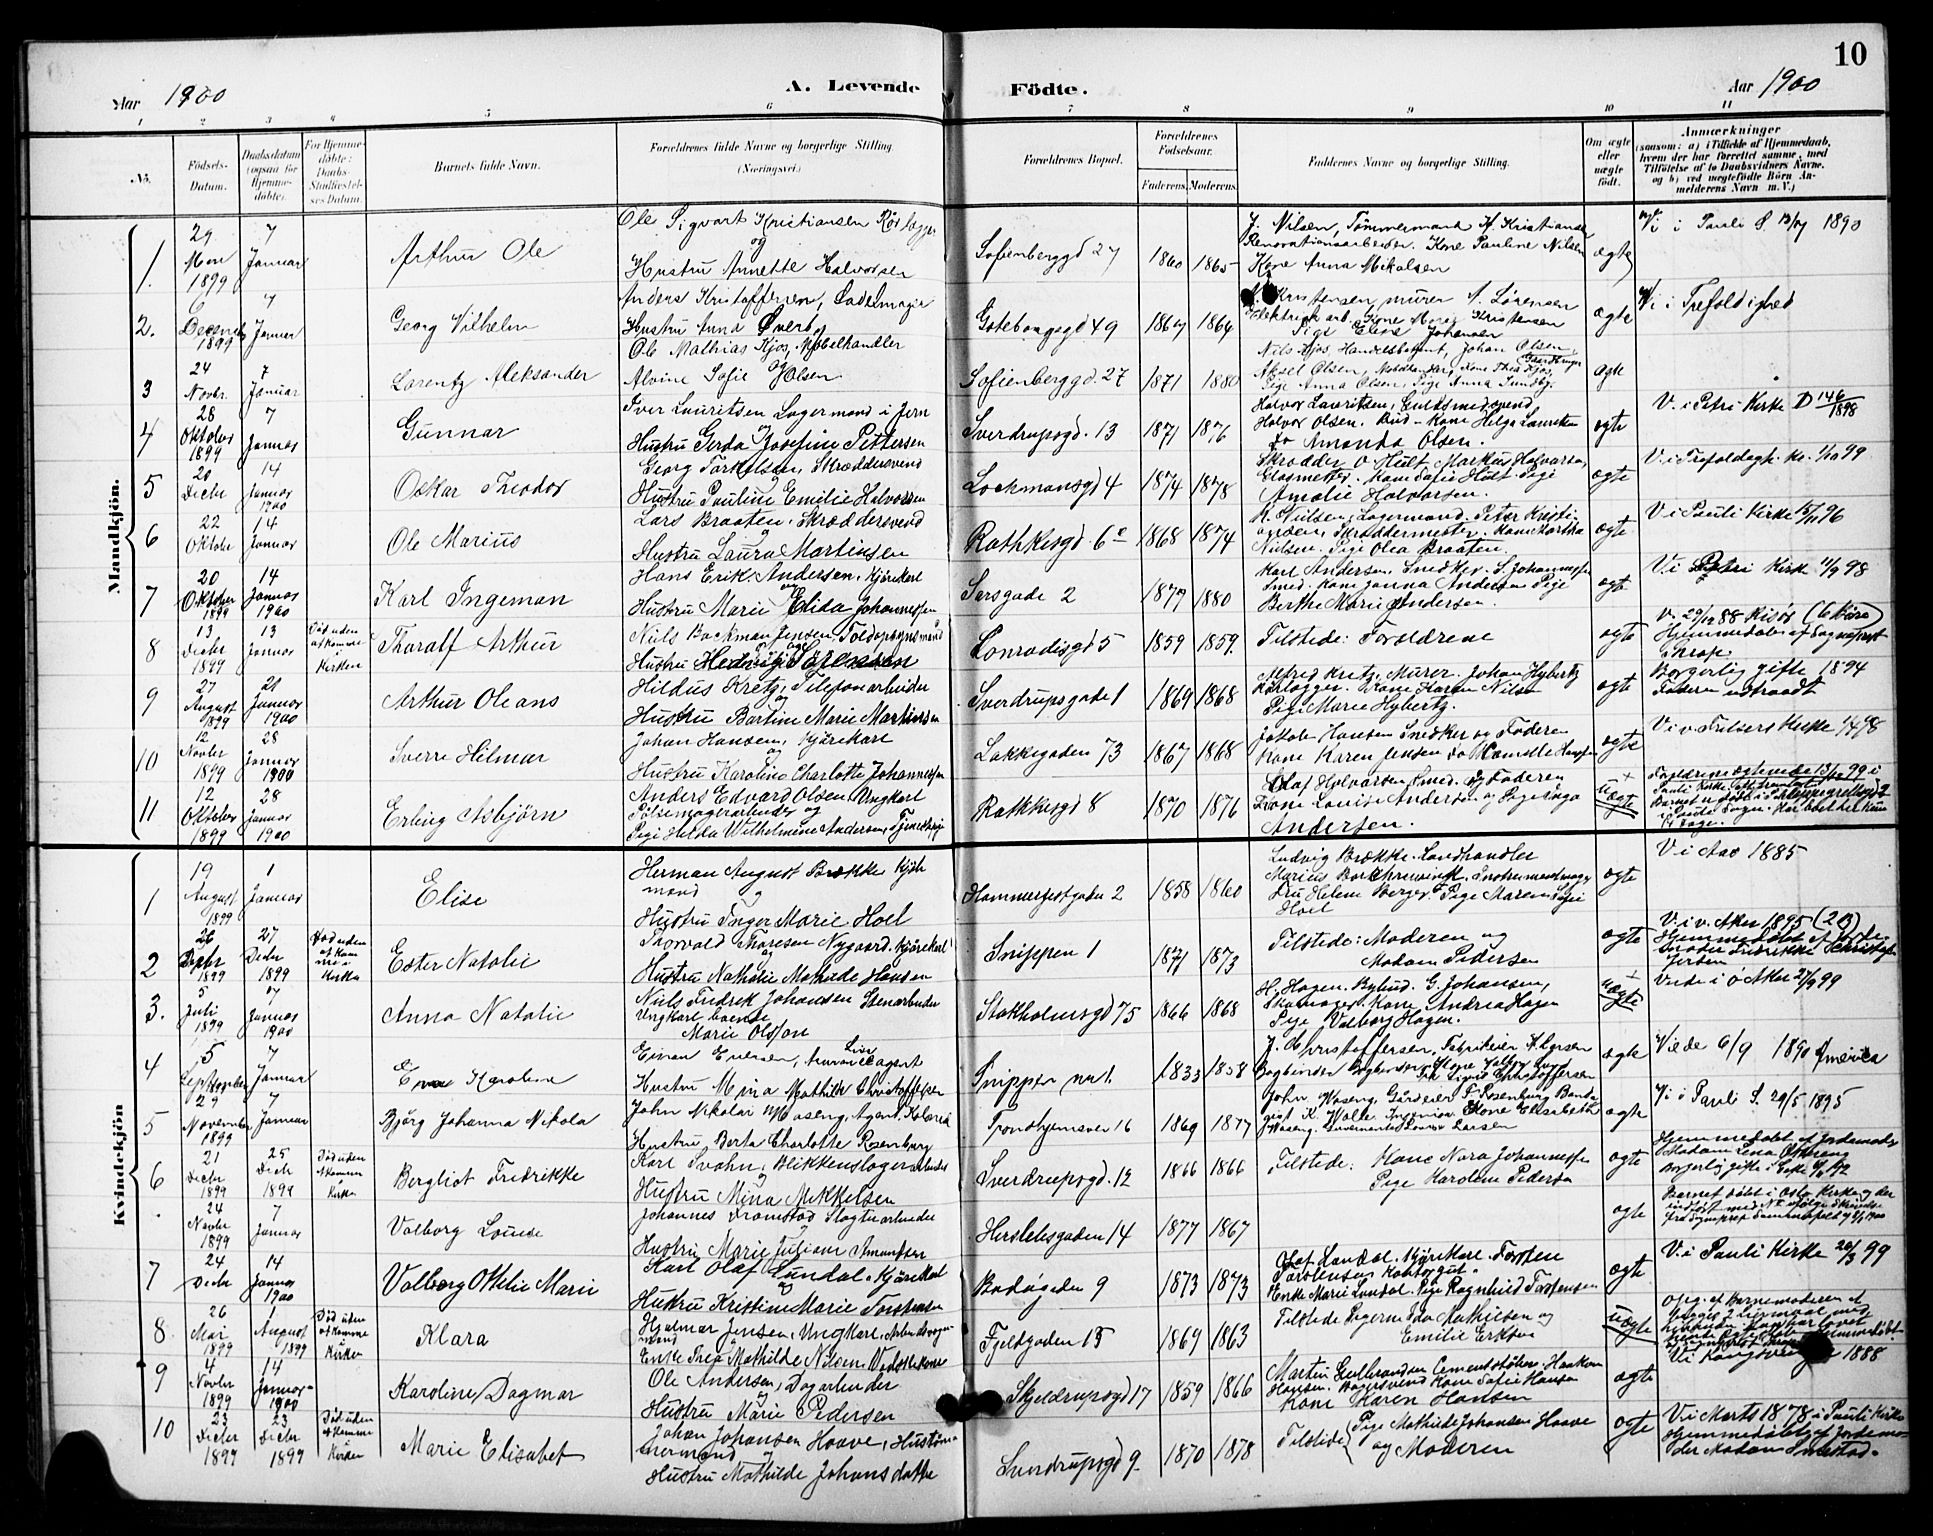 10
Aar 1900
A. Levende Födte.
Aar 1900
1 2 3 4 5 6 7 8 9 10 11
No.
Födsels-Datum.
Daabsdatum (ogsaa för Hjemme-döbte).
For Hjemme-döbte: Daabs-Stadfæstel-ses Datum.
Barnets fulde Navn.
Forældrenes fulde Navne og borgerlige Stilling. (Næringsvei.)
Forældrenes Bopæl.
Forældrenes Födselsaar.
Faderens. Moderens.
Faddernes Navne og borgerlige Stilling.
Om ægte eller uægte födt.
Anmærkninger
(saasom: a) i Tilfælde af Hjemmedaab, hvem der har forrettet samme, med Tilföielse af to Daabsvidners Navne. og b) ved uægtefödte Börn Anmelderens Navn m. V.)
Mandkjön.
1. 29 1899
7 Januar
Arthur Ole
Ole Sigvart Kristiansen Rörlægger
og
Hustru Annette Halvorsen
Sofienberggd 27
1860 1865
J. Nilsen, Tømmermand H. Kristiansen
Renovationsarbeider. Kone Pauline Nilsen
Kone Anna Mikalsen
ægte
V i Pauli
1890
2. December 1899
7 Januar
Georg Vilhelm
Anders Kristoffersen, Sadelmager
Hustru Anna Øverby
Gøteborgsgd 49
1867 1864
Kristensen, murer A. Sørensen
Elektrisk arb. Kone Marie Kristensen
Pige Eline Johansen
ægte
V i Trefoldighed
3 24 Novbr.
7 Januar
Lorentz Aleksander
Ole Mathias Kjos, Møbelhandler
og
Alvine Sofie Olsen
Sofienberggd. 27
1871 1880
Nils Kjos, Handelsbetjent, Johan Olsen, Gaardbruger
Aksel Olsen, Kone Thea Kjos,
Pige Anna Olsen, Pige Anna Sundby
ægte
4 28 Oktober 1899
7 Januar
Gunnar
Iver Lauritsen Lagermand i Jern
og
Hustru Gerda Josefine Pettersen
Sverdrupsgd. 13
1871 1876
Halvor Lauritsen, Guldsmedsvend
Halvor Olsen. Bud - Kone Helga Lauritsen
Do Amanda Olsen.
ægte
V. i Petri Kirke D 146/1898
5 20 Decbr
14 Januar 1900
Oskar Theodor
Georg Torkelsen, Skræddersvend
og
Hustru Pauline Emilie Halvorsen
Lochmansgd 4
1874 1878
Skrædder O Hult, Markus Halvorsen,
Glasmester. Kone Sofie Hult. Pige
Amalie Halvorsen.
ægte
V. i Trefoldigh. ke. 1/10 99
6 22 Oktobr
14 Januar
Ole Marius
Lars Braaten, Skræddersvend
og
Hustru Laura Martinsen
Rathkesgd. 6
1868 1874
R. Nilsen, Lagermand. Peter Kristi
ansen, Skræddermester, Kone Martha
Nielsen. Pige Olea Braaten.
ægte
V. i Pauli Kirke 15/11 96
7 20 Oktober 1899
14 Januar 1900
Karl Ingeman
Hans Erik Andersen, Kjørekarl
og
Hustru Marie Elida Johannessen
Sarsgade 2
1877 1880
Karl Andersen, Snedker. S. Johannessen
Smed. Kone Janna Andersen Pige
Berthe Marie Andersen.
ægte
V i Petri Kirke 11/9 98
8 13 Decbr 1899
13 Januar
Död uden at komme i Kirken
Thoralf Arthur
Nils Backman Jensen, Toldopsynsmand
og
Hustru Hedvig Sørensen
Conradisgd 5
1859 1859.
Tilstede: Forældrene
ægte
V. 29/12 88 Risør (6 Børn)
Hjemmedøbt af Sogneprest
9 27 August 1899
21 Januar 1900
Arthur Oleans
Hildus Kretz, Telefonarbeider
og
Hustru Bartine Marie Martinsen
Sverdrupsgade 1
1869 1868
Alfred Kretz, Murer. Johan Hybertz
Rørlægger. Kone Karen Nilsen
Pige Marie Hybertz.
ægte
Borgerlig gifte 1894
Faderen udtraadt
10 12 Novbr 1899
28 Januar 1900
Sverre Hilmar
Johan Hansen, Kjørekarl
og
Hustru Karoline Charlotte Johannessen
Lakkegaden 73
1867 1868
Jakob Hansen Snedker og Faderen
Kone Karen Jensen Do Hansen
ægte
11 12 Oktober 1899
28 Januar 1900
Erling Asbjørn
Anders Edvard Olsen, Ungkarl
Pølsemagerarbeider og
Pige Helda Wilhelmine Andersen, Tjenestepige
Rathkesgd 8
1870 1876
Olaf Halvorsen, Smed. og Faderen
Kone Louise Andersen og Pige Inga
Andersen.
uægte
Forældrene ægteviede 13/12 99 i
Pauli Kirke
Kvindekjön
1 19 August 1899
1 Januar
Elise
Herman August Brække Kjøbmand
og
Hustru Inger Marie Hoel
Hammerfestgaden 2
1858 1860
Ludvig Brække. Landhandler
Marius Instrumentmager
Fru Helene Berger. Pige Maren Sofie
Hoel
ægte
V i Aas 1885
2 26 Septbr 1899
27 Decbr 1899
Död uden at komme i Kirke
Ester Natalie
Thorvald Thoresen Nygaard. Kjørekarl
og
Hustru Nathalie Mathilde Hansen
Snippen 1
1871 1873
Tilstede: Moderen og
Madam Pedersen
ægte
V. i v. Aker 1895 (2 B)
3. 5 Juli 1899
7 Januar 1900
Anna Natalie
Niels Fredrik Johansen Stenarbeider
Ungkarl boende
Marie Olsson
Stokholmsgd 75
1866 1868
H. Hagen. Bybud. G. Johansen,
Skomager. Kone Andrea Hagen
Pige Valborg Hagen.
uægte
Viede i Ø Aker 27/9 99
4 5 September
7 Januar
Karoline
Einar Eversen,
Hustru Mina Mathilde Christoffersen
Snippen no 1.
1833 1858
J. Christoffersen, Fabrikeier
Bogbinder
ægte
Viede 6/9 1890 America
5 29 November 1899
7 Januar
Bjørg Johanna Nikola
John Nikolai Waseng, Agent, Kolonial
Hustru Berta Charlotte Rosenburg
Trondhjemsvei 16
1869 1877
John Waseng, Gårdeier F. Rosenburg
K. Wolle Kone Elisabeth
Waseng. Larsen
ægte
V i Pauli S. 29/5 1895
6 21 Decbr 1899
25 Decbr 1899
Död uden at komme i Kirke
Bergliot Fredrikke
Karl Svahn, Blikkenslagerarbeider
og
Hustru Mina Mikkelsen
Sverdrupsgd. 12
1866 1866
Tilstede: Kone Nora Johannessen
Pige Karoline Pedersen
ægte
Hjemmedøbt af Jordemoder
Madam Lena
Borgerlig gifte
24 Novbr 1899
7 Januar
Valborg Louise
Johannes Framstad Slagterarbeider
Hustru Marie Juliane Amundsen
Herslebsgaden 14
1877 1867
ægte
Barnet døbt i Oslo Kirke og der
indført med No
7 24 Decbr
14 Januar 1900
Valborg Othilie Marie
Karl Olaf Lundal, Kjørekarl
og
Hustru Kristine Marie Torstensen
Bodøgaden 9
1873 1873
Olaf Lundal. Kjørekarl. Torsten
Torstensen Kontorgut.
Enke Marie Lundal. Pige Ragnhild Torstensen
ægte
V. i Pauli Kirke 26/3 99
8 26 Mai 1899
1 August 1899
Död uden at komme i Kirken
Klara
Hjalmar Jensen, Ungkarl, Arbeidsvognmand
Enke Thea Mathilde Nilsen Vadskekone
Fjeldgaden 15
1869 1863
Tilstede Pigerne Ida Mathiesen og
Emilie Eriksen
uægte
Opg. af Barnemoderen
9 4 Novbr 1899
14 Januar 1900
Karoline Dagmar
Ole Andersen, Dagarbeider
og
Hustru Marie Pedersen
Skjeldrupsgd 17
1859 1866
Martin Gulbrandsen Cementstøber, Haakon
Hansen. Bagersvend Kone Sofie Hansen
Kone Karen Hansen
ægte
V i Kongsvinger 1888
10 23 Decbr 1899
23 Decbr 1899
Död uden at komme i Kirken
Marie Elisabet
Johan Johansen Haave, Hustømmermand
Hustru Mathilde Johansdatter
Sverdrupsgd 9
1870 1878
Tilstede Pige Mathilde Johansen Haave
og Moderen
ægte
V. i Marts 1878 i Pauli Kirke
Hjemmedøbt af Jordemo-
der Madam Smestad.